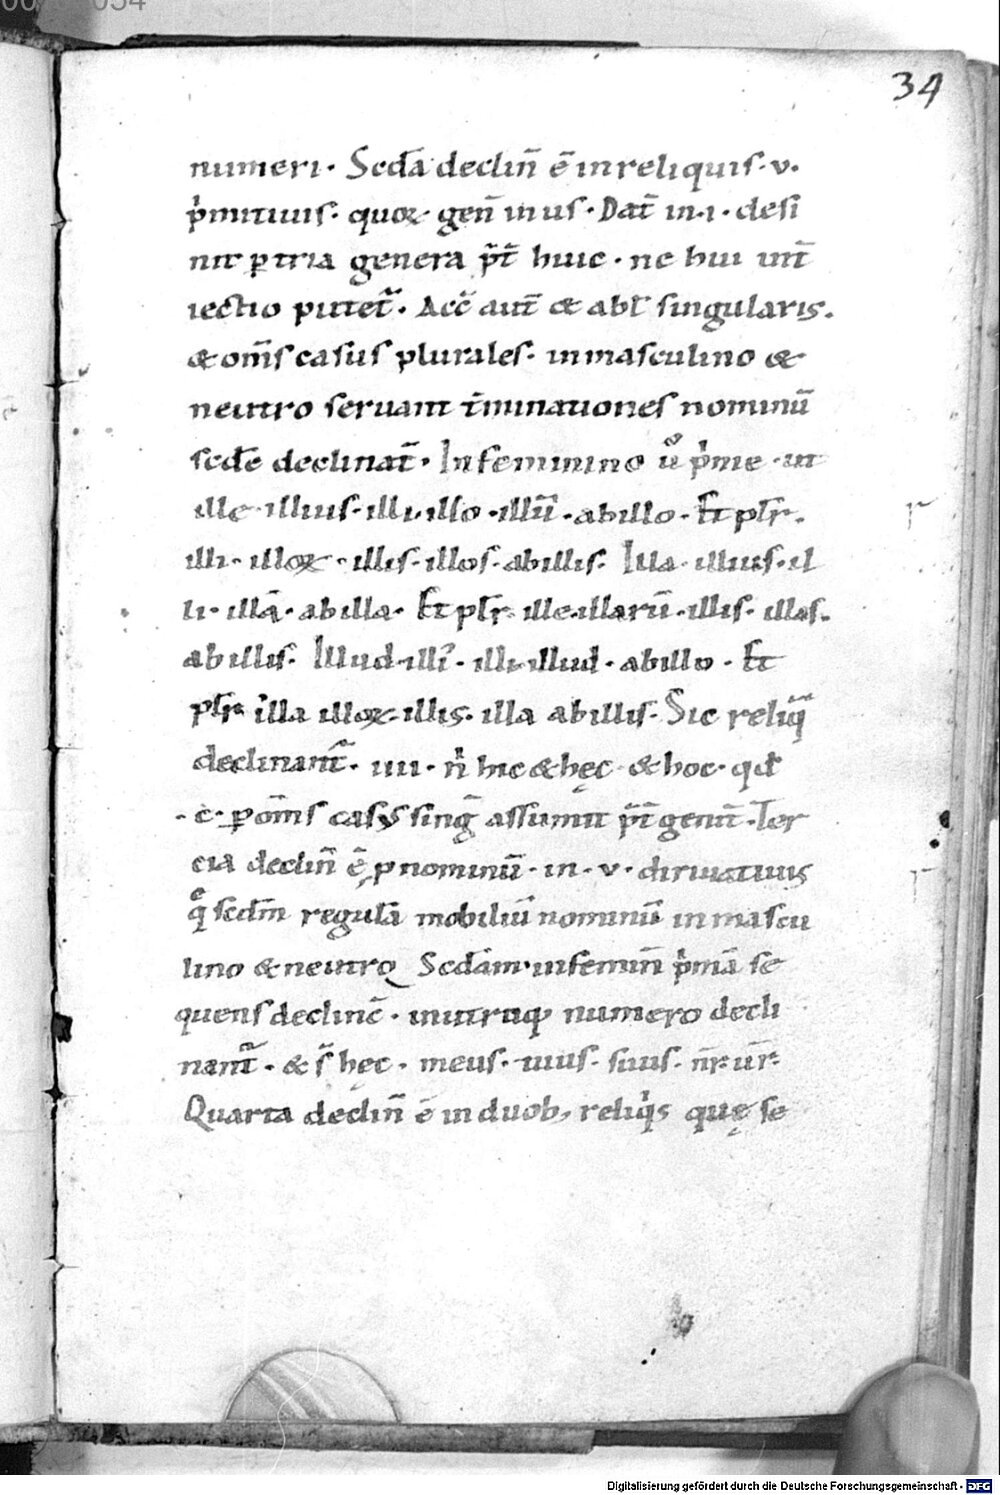 34
numeri · Scda declin̄ ē in reliquis · v ·
pͥmitiuis · quoꝝ gen̄ in us · Dat̄ in · i · desi
nit ꝑ tria genera p̄t̄ huic · ne hui int̄
iectio putet᷑ · Acc̄ aut̄ & abl̄ singularis ·
& om̄s casus plurales · in masculino &
neutro seruant t̄minationes nominū
scdē declinat᷑ · In feminino ů pͥme · ut
ille · illius · illi · illo · illū · ab illo · Et plr̄ ·
illi · illoꝝ · illis · illos · ab illis · Illa · illius · il
li · illā · ab illa · Et plr̄ · ille · illarū · illis · illas ·
ab illis · Illud · illi᷒ · illi · illud · ab illo · Et
plr̄ · illa illoꝝ · illis · illa ab illis · Sic reliq̄
declinant᷑ · iiii · nͥ hic & hęc · & hoc · qd̄
· c · ꝑ om̄s casus sinḡ assumit p̄t̄ genit̄ · Ter
cia declin̄ ē pnominū · in · v · diriuatiuis
q̊ scdm̄ regulā mobiliū nominū in mascu
lino & neutro Scdām · in femin̄ pͥmā se
quens declinc̄ · in utroq numero decli
nant᷑ · & s̄ hęc · meus · tuus · suus · nr̄ · ur̄ ·
Quarta declin̄ ē in duob; reliqͥs quę se
Digitalisierung gefördert durch die Deutsche Forschungsgemeinschaft - DFG